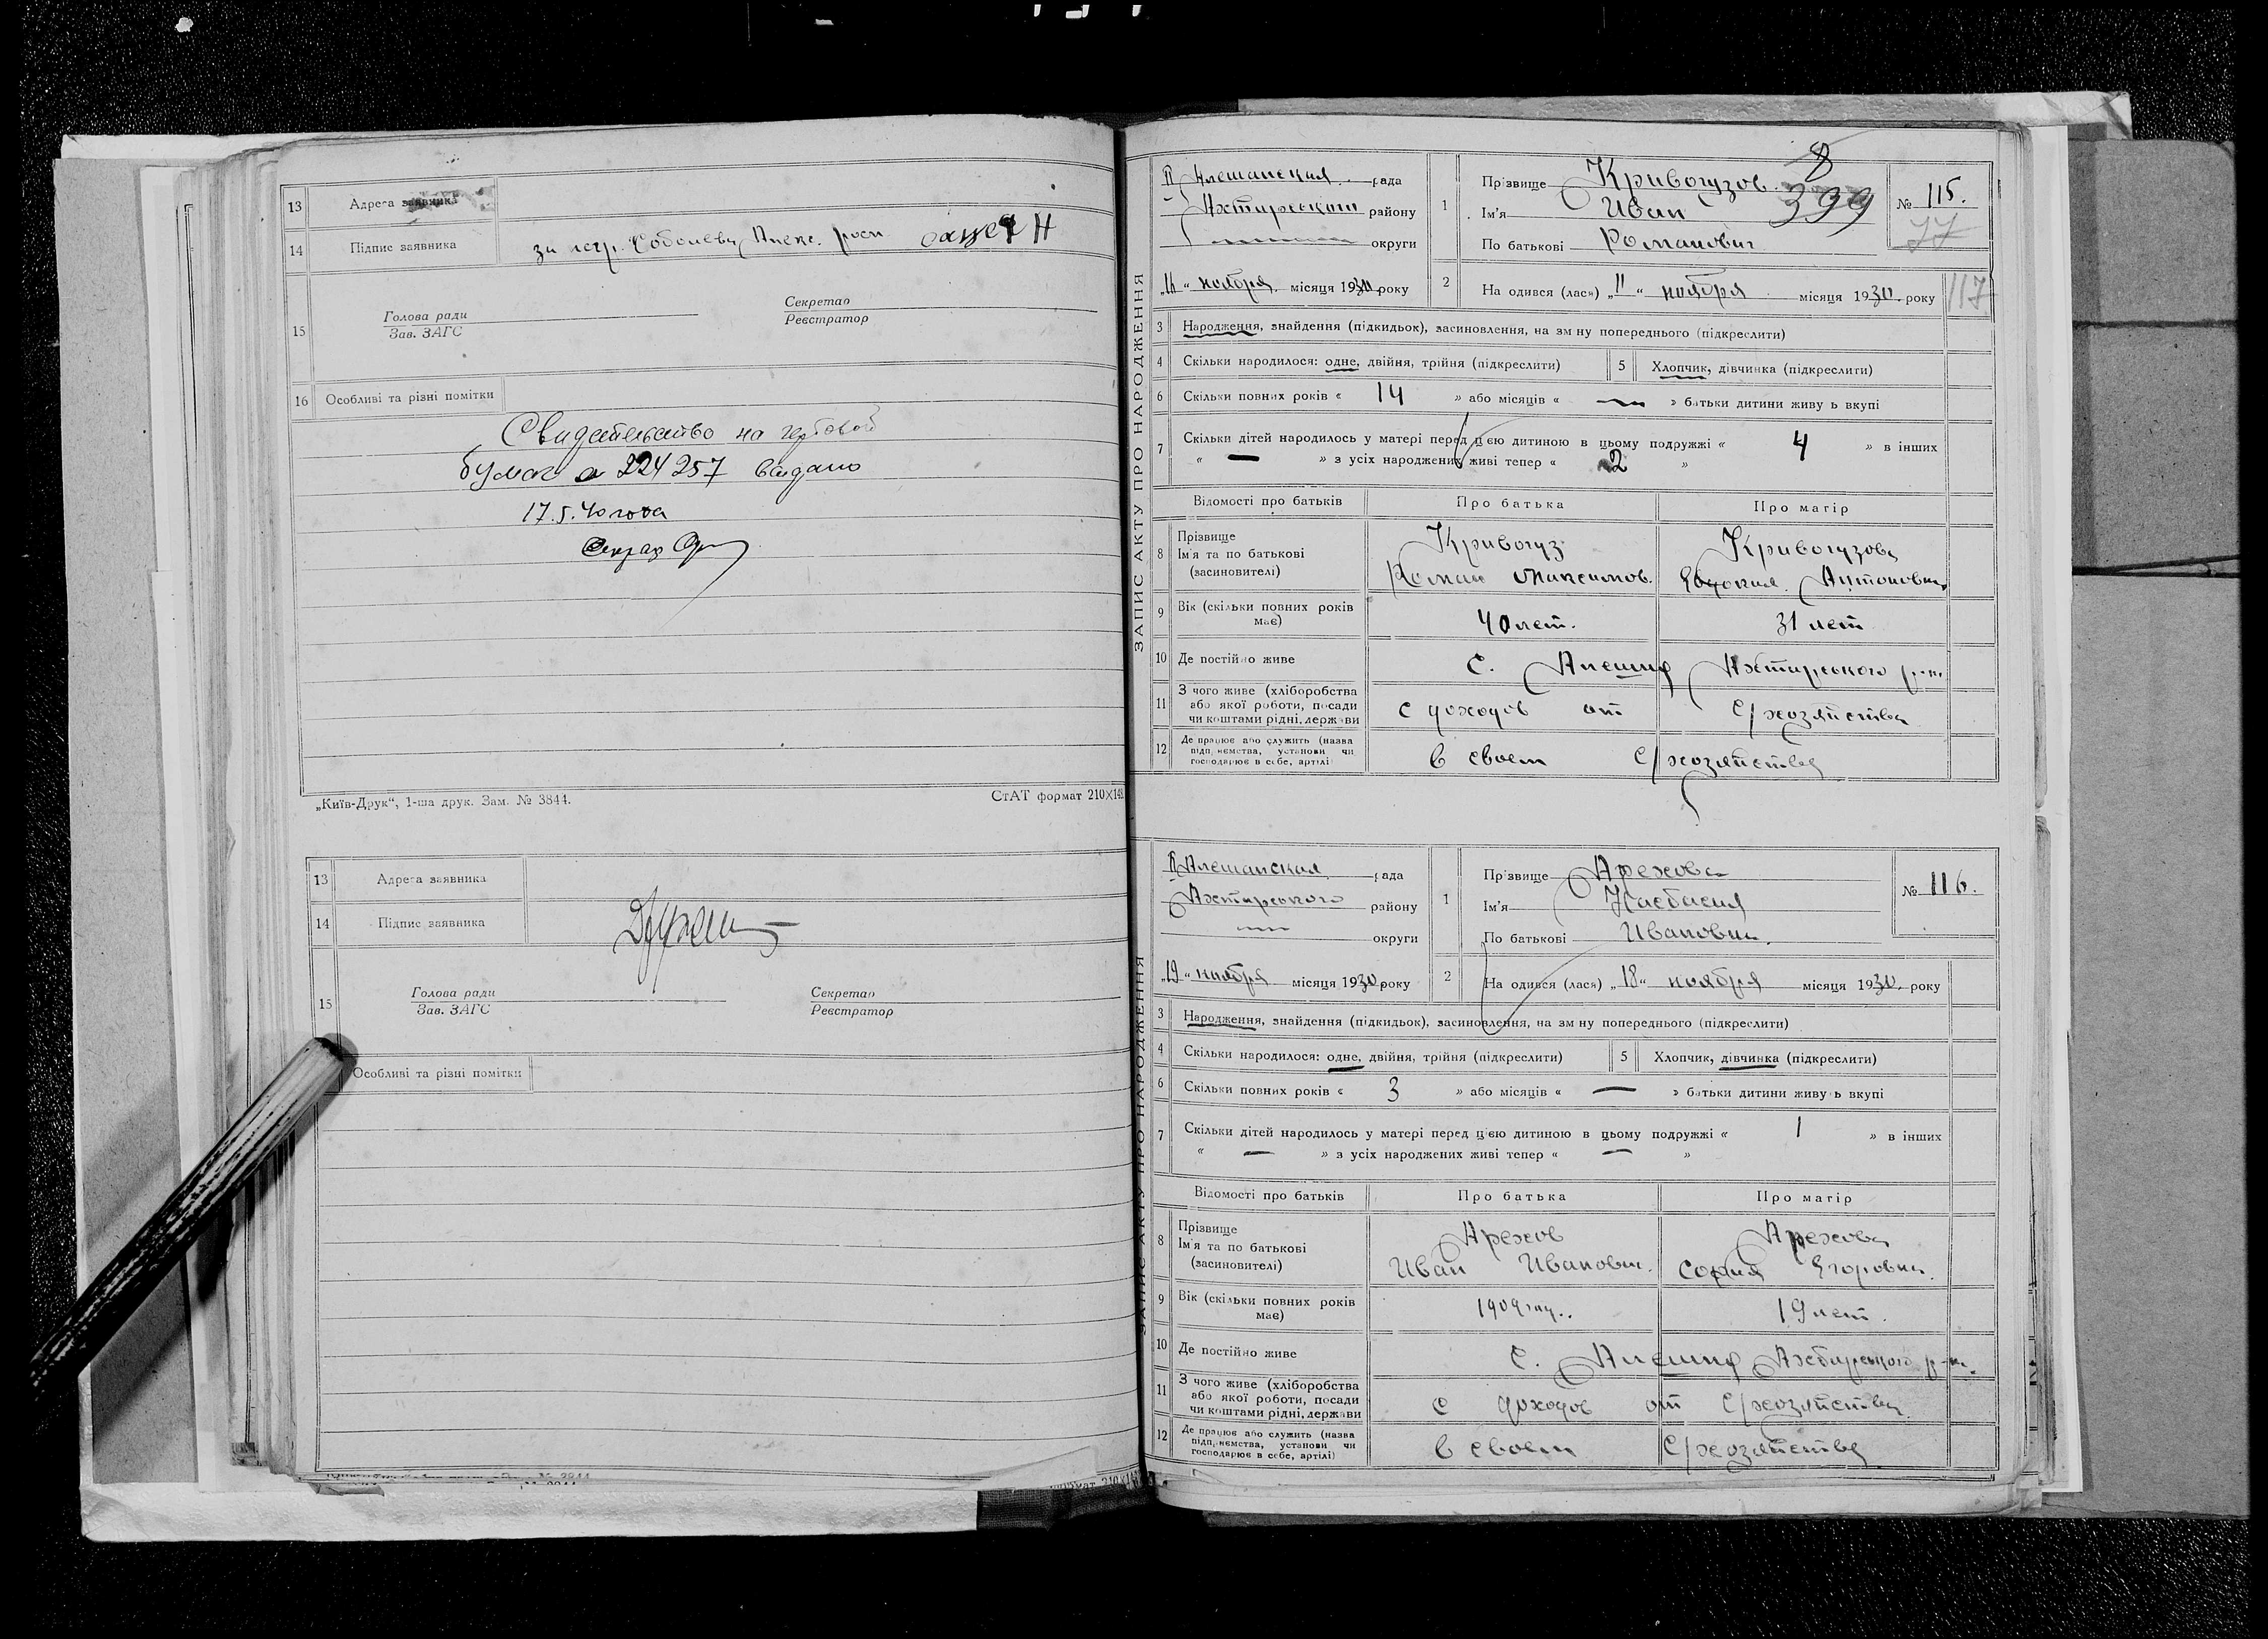 13 Адреса заявника
14 Підпис заявника за негр. Соболеву Алекс. росп.
15 Голова ради
Зав. ЗАГС
Секретар
Реєстратор
16 Особливі та різні помітки
Свидетельство на гербовой
бумаге 224257 выдано
17.5.40 года
„Київ-Друк“, 1-ша друк. Зам. № 3844.
СтАТ формат 210×148
13 Адреса заявника
14 Підпис заявника
15 Голова ради
Зав. ЗАГС
Секретар
Реєстратор
Особливі та різні помітки
ЗАПИС АКТУ ПРО НАРОДЖЕННЯ
Алешанская рада
Ахтирський району
округи
„16“ ноября місяця 1930 року
1 Прізвище Кривогузов
Ім'я Иван
По батькові Романович
8
399
№ 115.
77
117
2 На одився (лась) „11“ ноября місяця 1930. року
3 Народження, знайдення (підкидьок), засиновлення, на зм ну попереднього (підкреслити)
4 Скільки народилося: одне, двійня, трійня (підкреслити)
5 Хлопчик, дівчинка (підкреслити)
6 Скільки повних років « 14 » або місяців « — » батьки дитини живу ь вкупі
7 Скільки дітей народилось у матері перед цією дитиною в цьому подружжі « 4 » в інших
« — » з усіх народжених живі тепер « 2 »
Відомості про батьків Про батька Про матір
8 Прізвище
Ім'я та по батькові
(засиновителі)
Кривогуз
Роман Максимов.
Кривогузова
Евдокия Антоновна
9 Вік (скільки повних років має) 40 лет. 31 лет
10 Де постійно живе с. Алешня Ахтирського р-на
11 З чого живе (хліборобства
або якої роботи, посади
чи коштами рідні, держави
с доходов от с/хозяйства
12 Де працює або служить (назва
підприємства, установи чи
господарює в себе, артілі)
в своем с/хозяйстве
ЗАПИС АКТУ ПРО НАРОДЖЕННЯ
Алешанская рада
Ахтирського району
округи
„19“ ноября місяця 1930 року
1 Прізвище Арехова
Ім'я Настасия
По батькові Ивановна.
№ 116.
2 На одився (лася) „18“ ноября місяця 1930. року
3 Народження, знайдення (підкидьок), засиновлення, на зм ну попереднього (підкреслити)
4 Скільки народилося: одне, двійня, трійня (підкреслити)
5 Хлопчик, дівчинка (підкреслити)
6 Скільки повних років « 3 » або місяців « — » батьки дитини живу ь вкупі
7 Скільки дітей народилось у матері перед цією дитиною в цьому подружжі « 1 » в інших
« — » з усіх народжених живі тепер « — »
Відомості про батьків Про батька Про матір
8 Прізвище
Ім'я та по батькові
(засиновителі)
Арехов
Иван Иванович.
Арехова
София Егоровна.
9 Вік (скільки повних років має) 1909 19 лет.
10 Де постійно живе с. Алешня Ахтирського р-на.
11 З чого живе (хліборобства
або якої роботи, посади
чи коштами рідні, держави
с доходов от с/хозяйства
12 Де працює або служить (назва
підприємства, установи чи
господарює в себе, артілі)
в своем с/хозяйстве